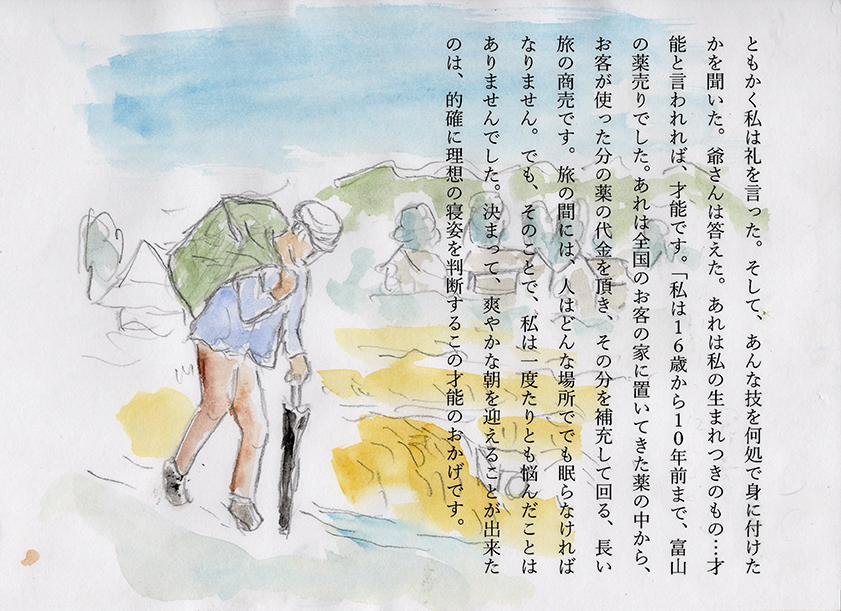 ともかく私は礼を言った。そして、あんな技を何処で身に付けた
かを聞いた。爺さんは答えた。あれは私の生まれつきのもの…才
能と言われれば、才能です。「私は16歳から10年前まで、富山
の薬売りでした。あれは全国のお客の家に置いてきた薬の中から、
お客が使った分の薬の代金を頂き、その分を補充して回る、長い
旅の商売です。旅の間には、人はどんな場所ででも眠らなければ
なりません。でも、そのことで、私は一度たりとも悩んだことは
ありませんでした。決まって、爽やかな朝を迎えることが出来た
のは、的確に理想の寝姿を判断するこの才能のおかげです。